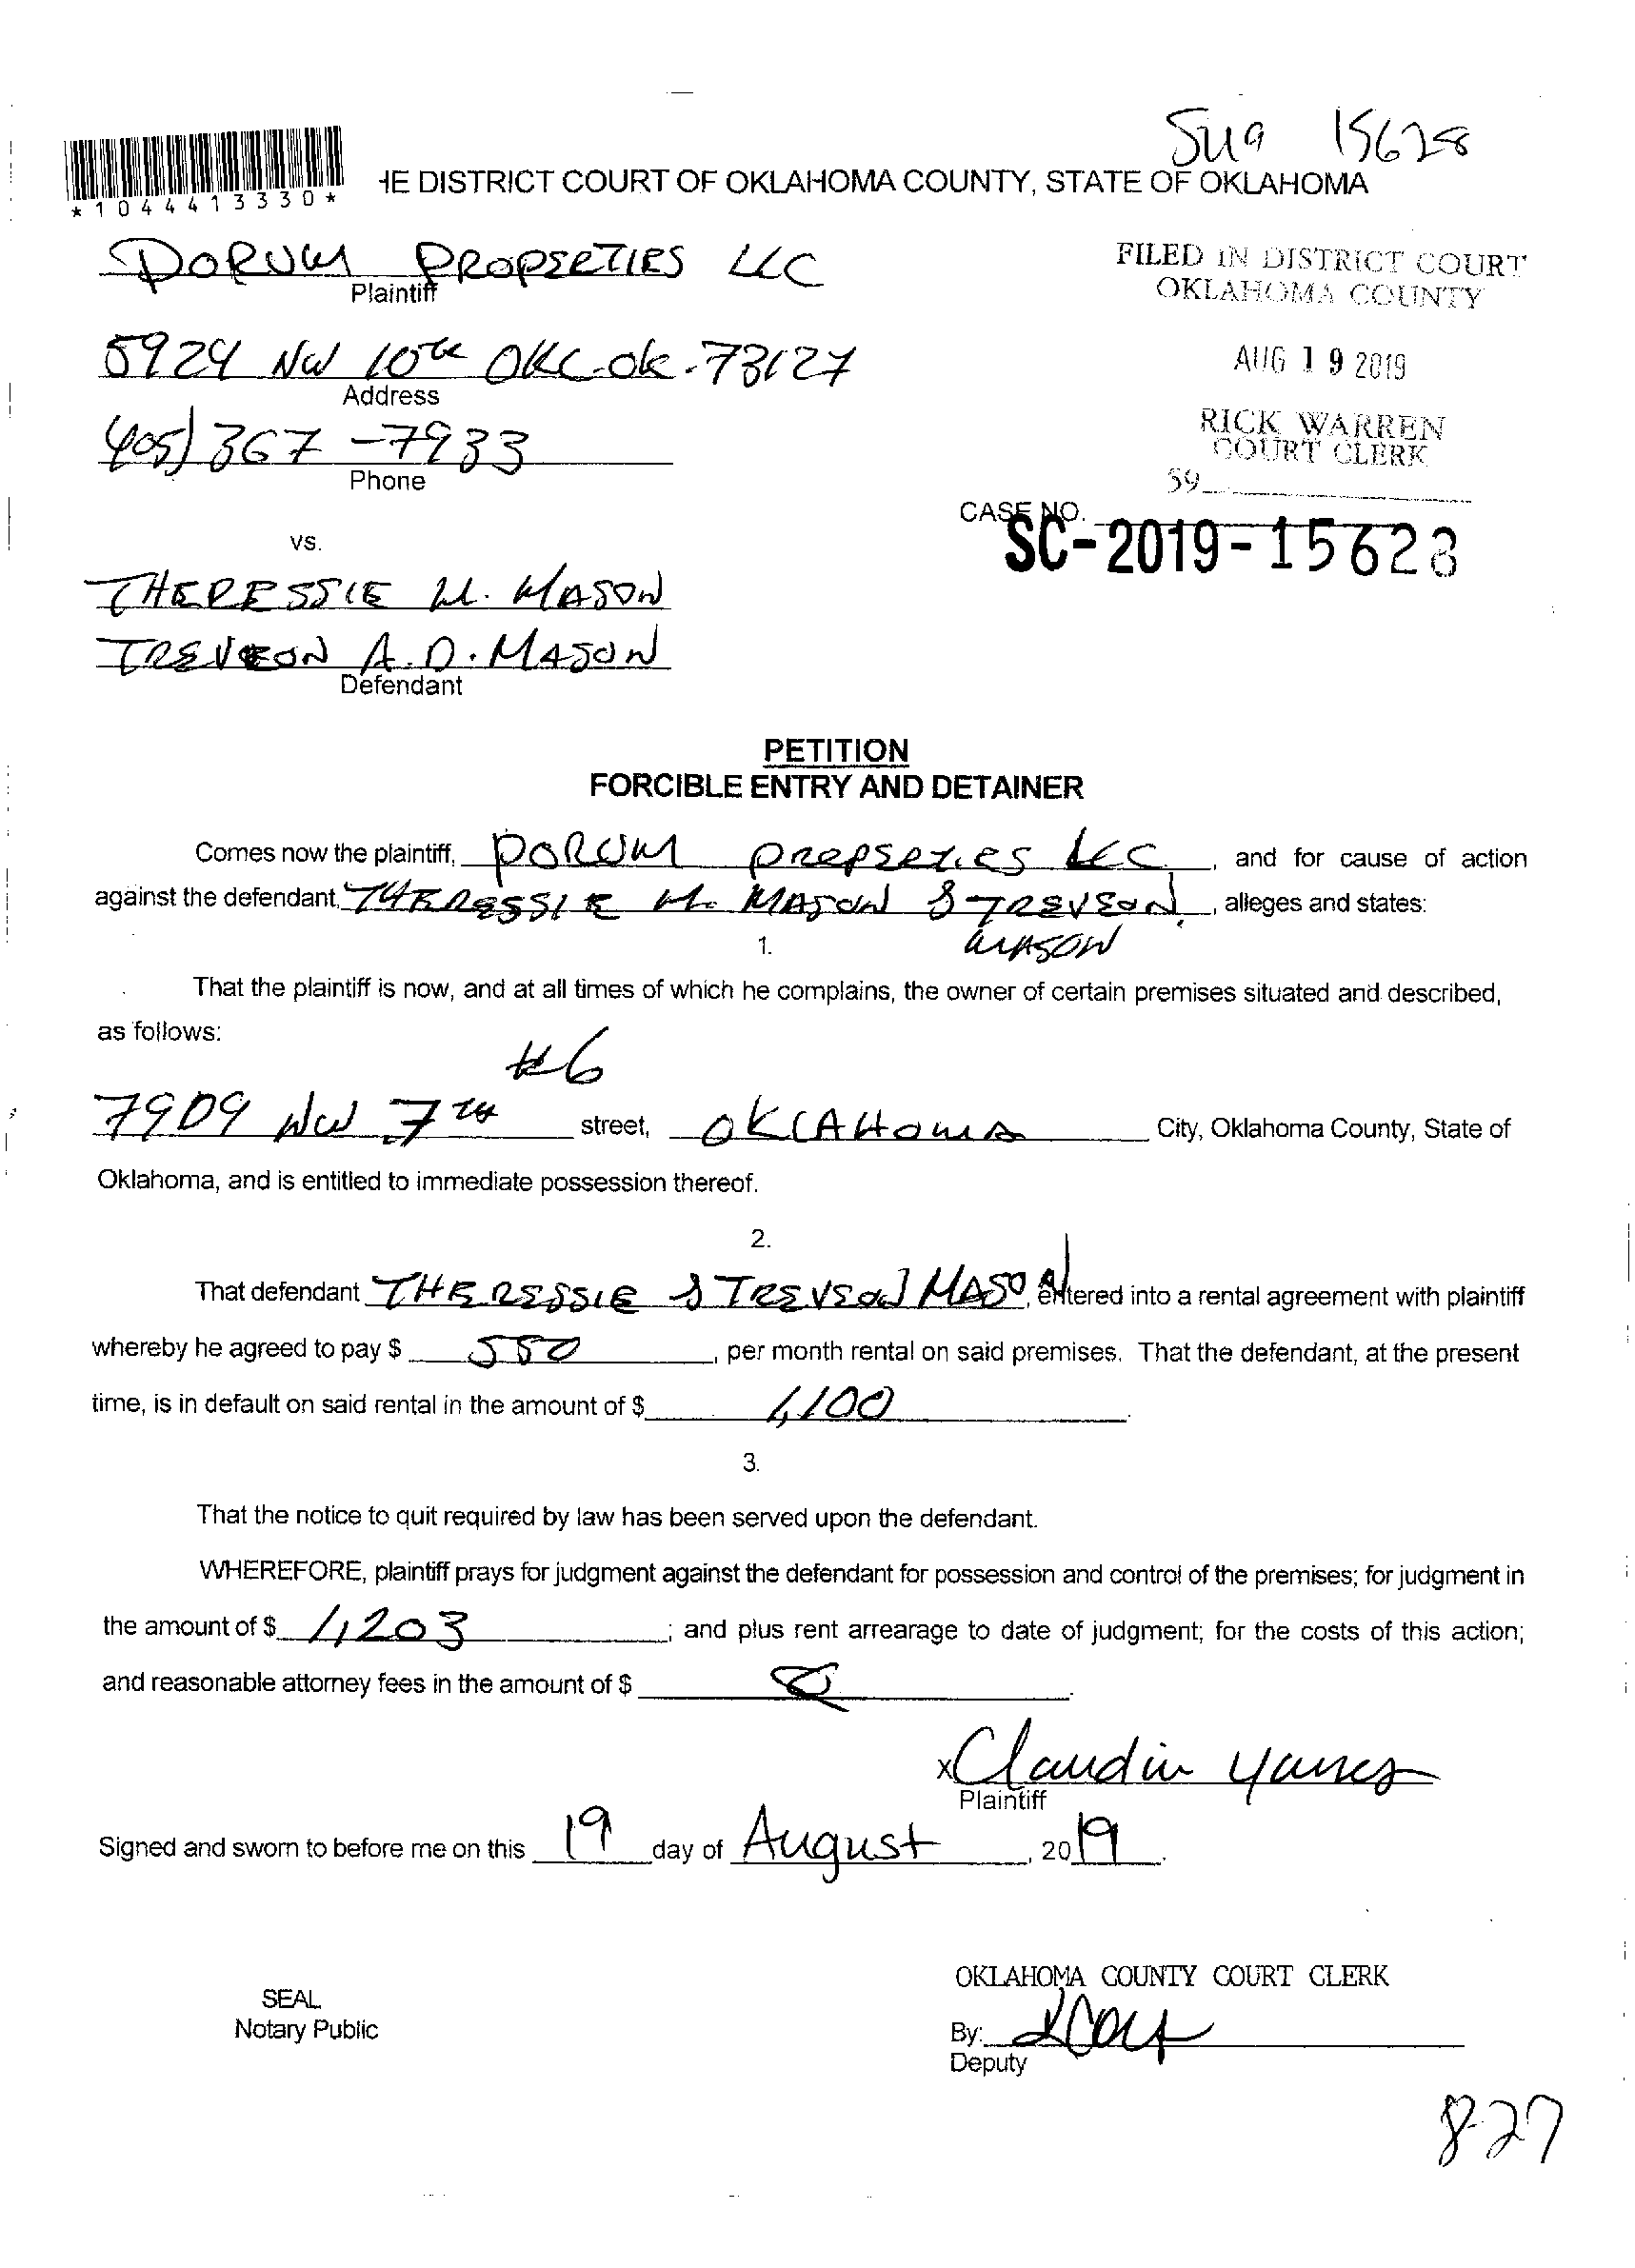 Sug 15628
*1044413330*
HE DISTRICT COURT OF OKLAHOMA COUNTY, STATE OF OKLAHOMA
DORUM PROPERTIES LLC
Plaintiff
FILED IN DISTRICT COURT
OKLAHOMA COUNTY
5924 NW 10th OKC-OK-73127
Address
AUG 19 2019
405) 367-7933
Phone
RICK WARREN
COURT CLERK
59
CASE NO.
SC-2019-15628
vs.
THERESSIE M. MASON
TREVEON A.D. MASON
Defendant
PETITION
FORCIBLE ENTRY AND DETAINER
Comes now the plaintiff, DORUM PROPERTIES LLC, and for cause of action
against the defendant, THERESSIE M. MASON & TREVEON, alleges and states:
MASON
1.
That the plaintiff is now, and at all times of which he complains, the owner of certain premises situated and described,
as follows:
#6
7909 NW 7TH street, OKLAHOMA City, Oklahoma County, State of
Oklahoma, and is entitled to immediate possession thereof.
2.
That defendant THERESSIE & TREVEON MASON, entered into a rental agreement with plaintiff
whereby he agreed to pay $ 550, per month rental on said premises. That the defendant, at the present
time, is in default on said rental in the amount of $ 1,100.
3.
That the notice to quit required by law has been served upon the defendant.
WHEREFORE, plaintiff prays for judgment against the defendant for possession and control of the premises; for judgment in
the amount of $ 1,203; and plus rent arrearage to date of judgment; for the costs of this action;
and reasonable attorney fees in the amount of $
x Claudin Yanez
Plaintiff
Signed and sworn to before me on this 19 day of August, 2019.
SEAL
Notary Public
OKLAHOMA COUNTY COURT CLERK
By:
Deputy
8-27